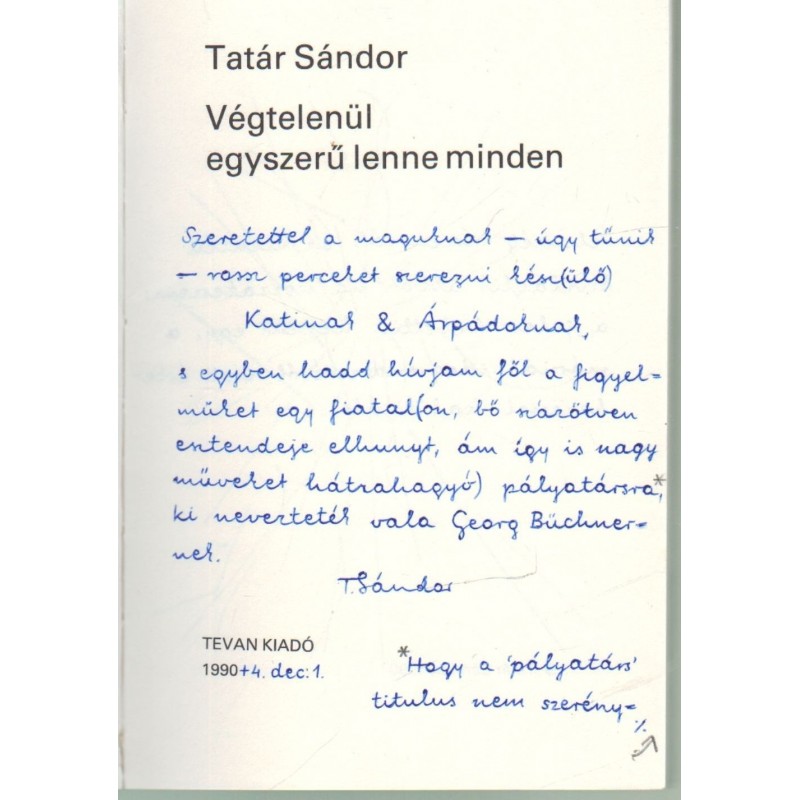 Tatár Sándor
Végtelenül
egyszerű lenne minden
Szeretettel a maguknak — úgy tűnik
— rossz perceket szerezni kész(ülő)
Katinak & Árpádoknak,
s egyben hadd hívjam föl a figyel=
müket egy fiatal(on, bő százötven
esztendeje elhunyt, ám így is nagy
műveket hátrahagyó) pályatársra*,
ki nevezteték vala Georg Büchner=
nek.
T.Sándor
TEVAN KIADÓ
1990+4. dec:1.
*Hogy a 'pályatárs'
titulus nem szerény=
./.